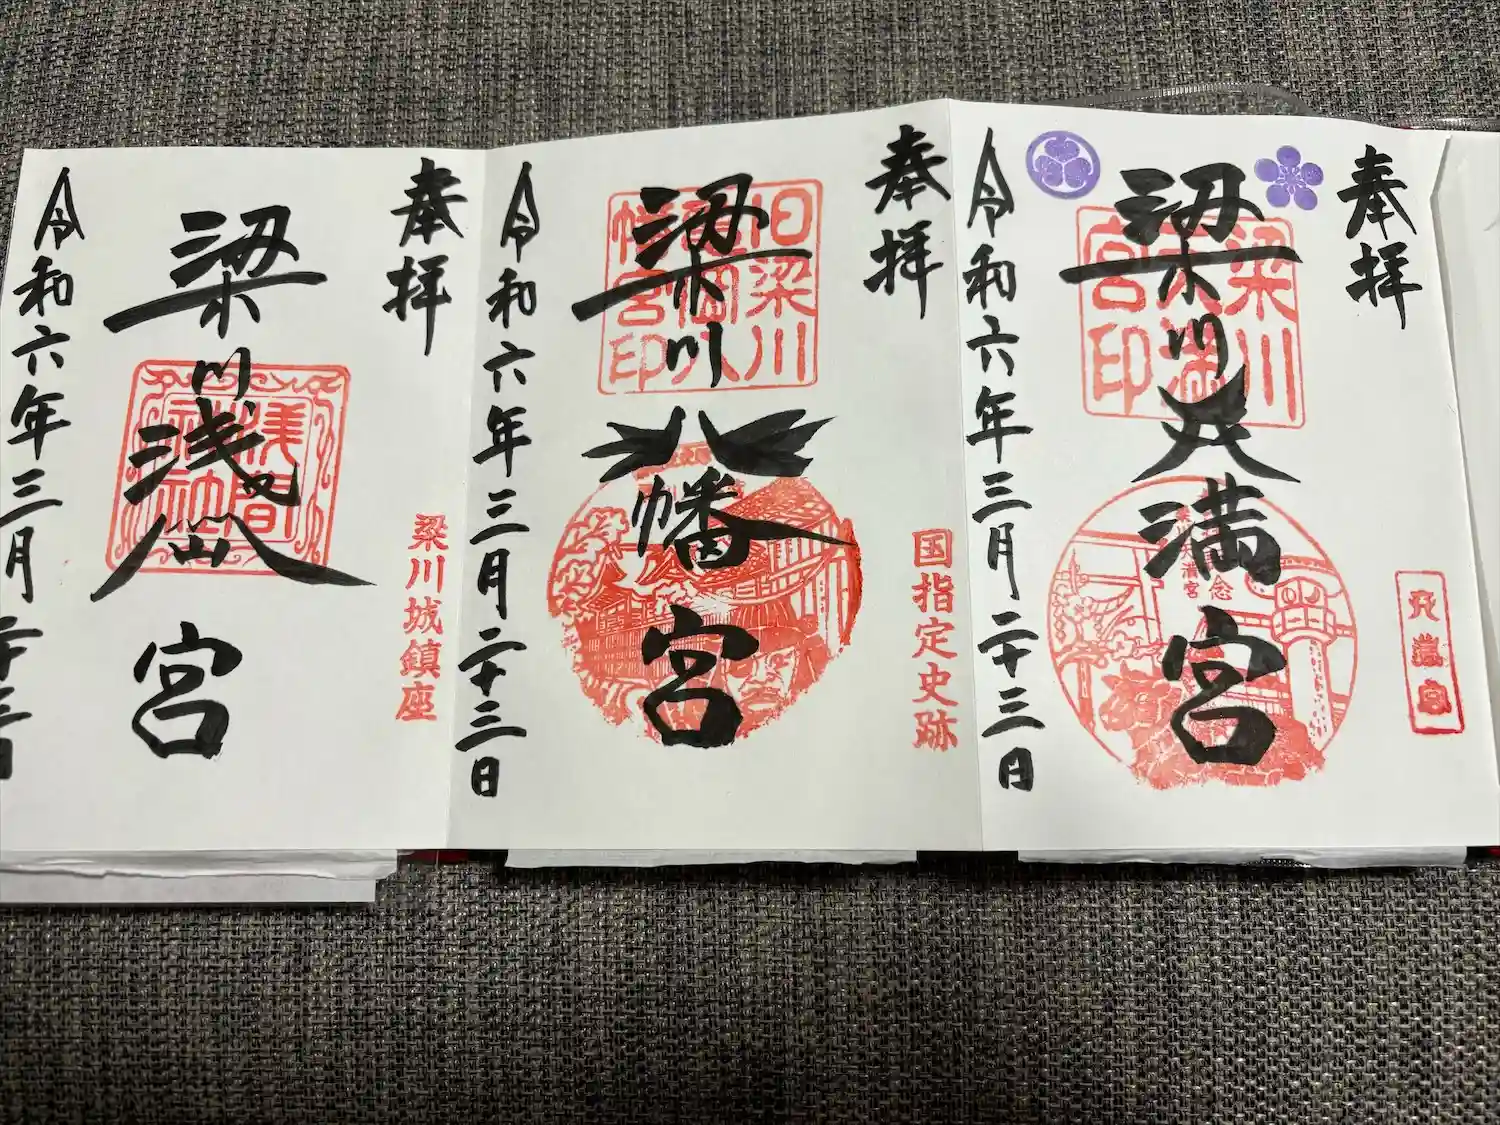 奉拝
梁川天満宮
梁川天満宮印
令和六年三月二十三日
奉拝
国指定史跡
梁川八幡宮
旧梁川亀岡八幡宮印
令和六年三月二十三日
奉拝
梁川城鎮座
梁川浅間宮
浅間神社
令和六年三月二十三日